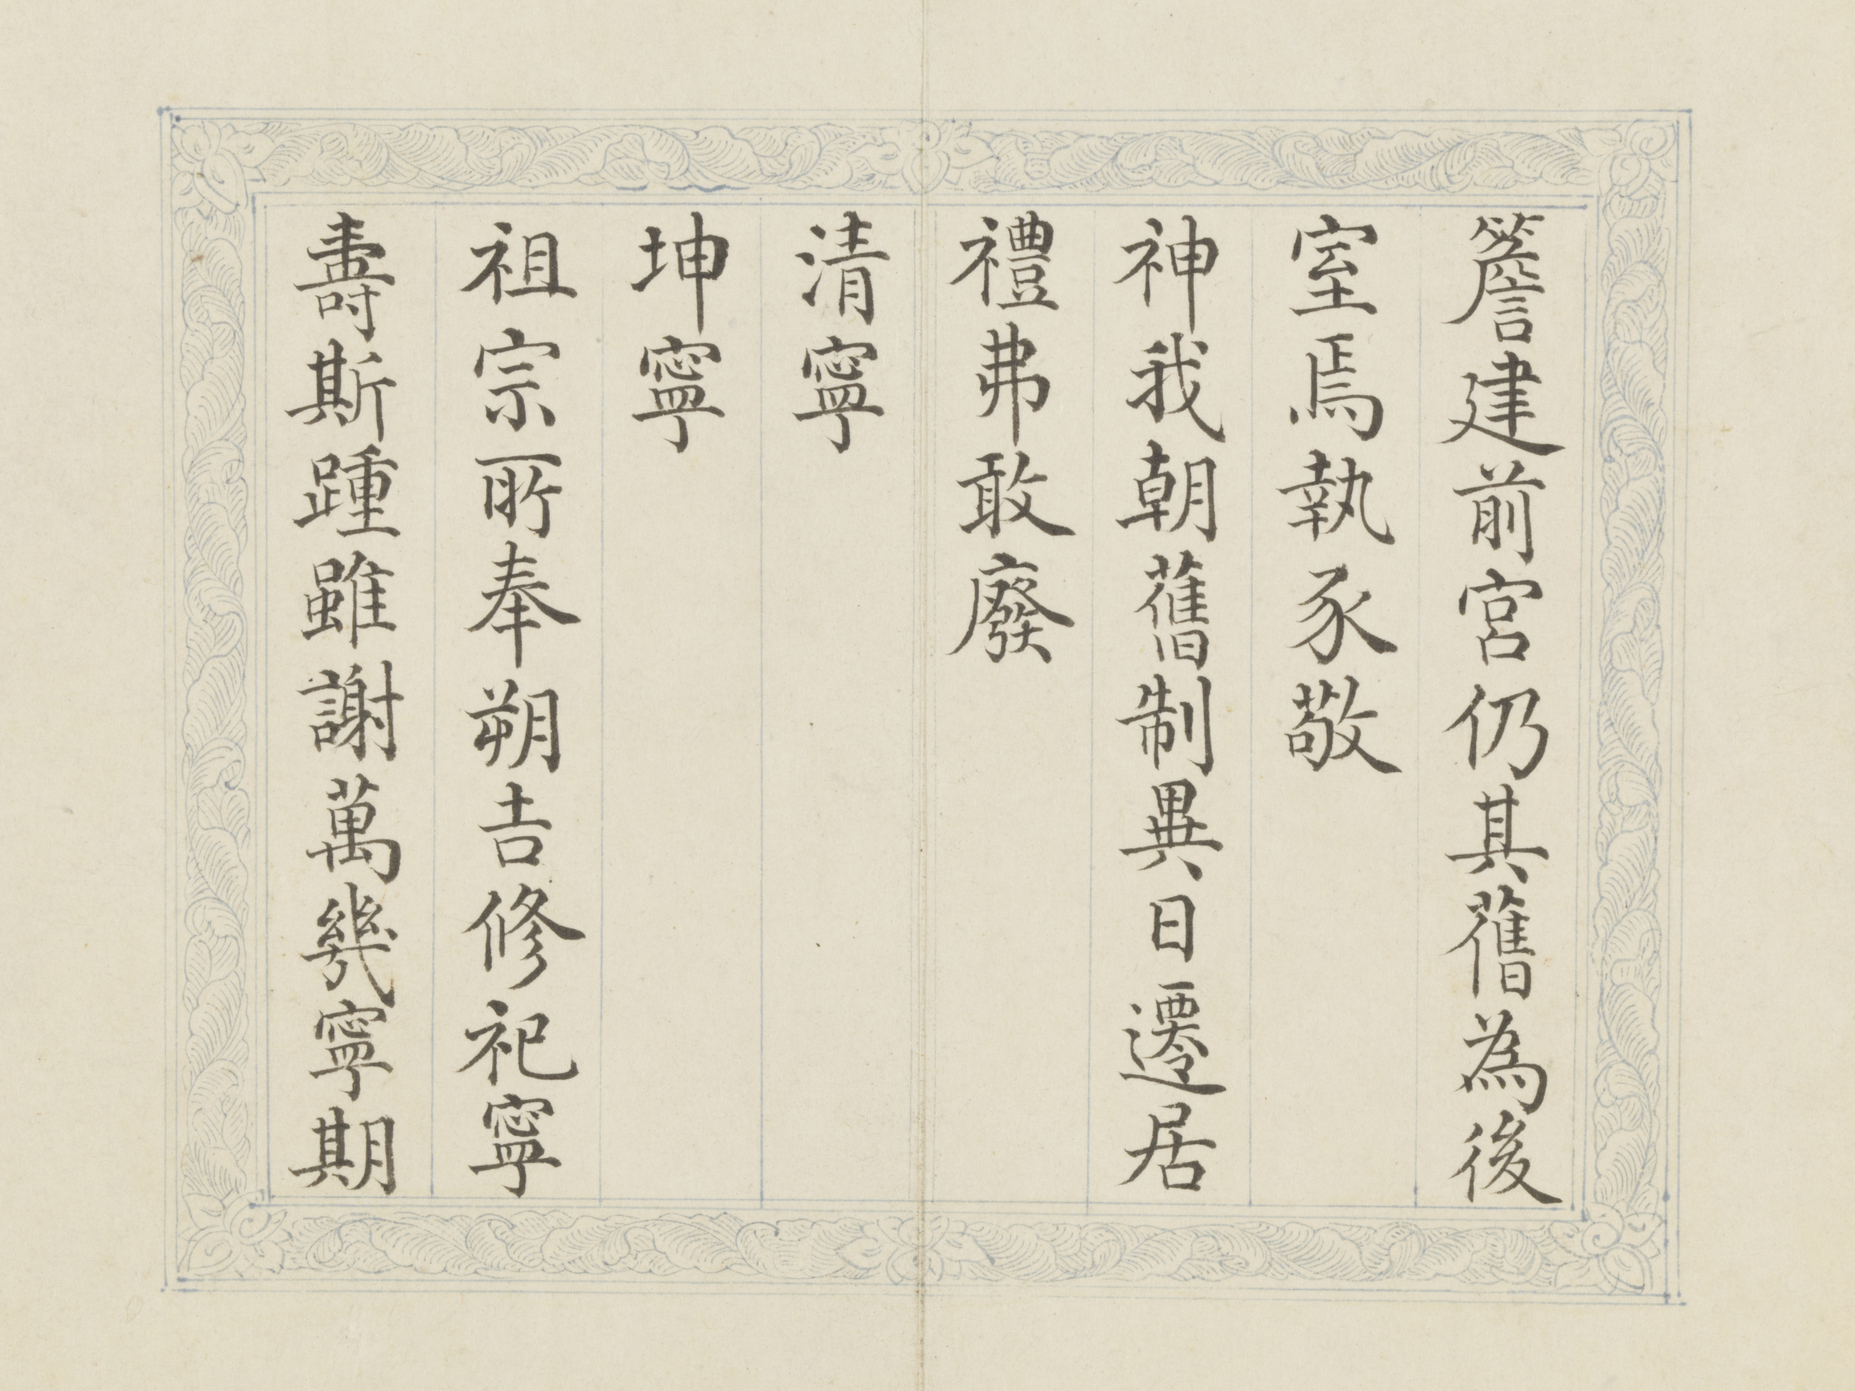 簷建前宮仍其舊為後
室焉執豕敬
神我朝舊制異日遷居
禮弗敢廢
清寧
坤寧
祖宗所奉朔吉修祀寧
壽斯踵雖謝萬幾寧期